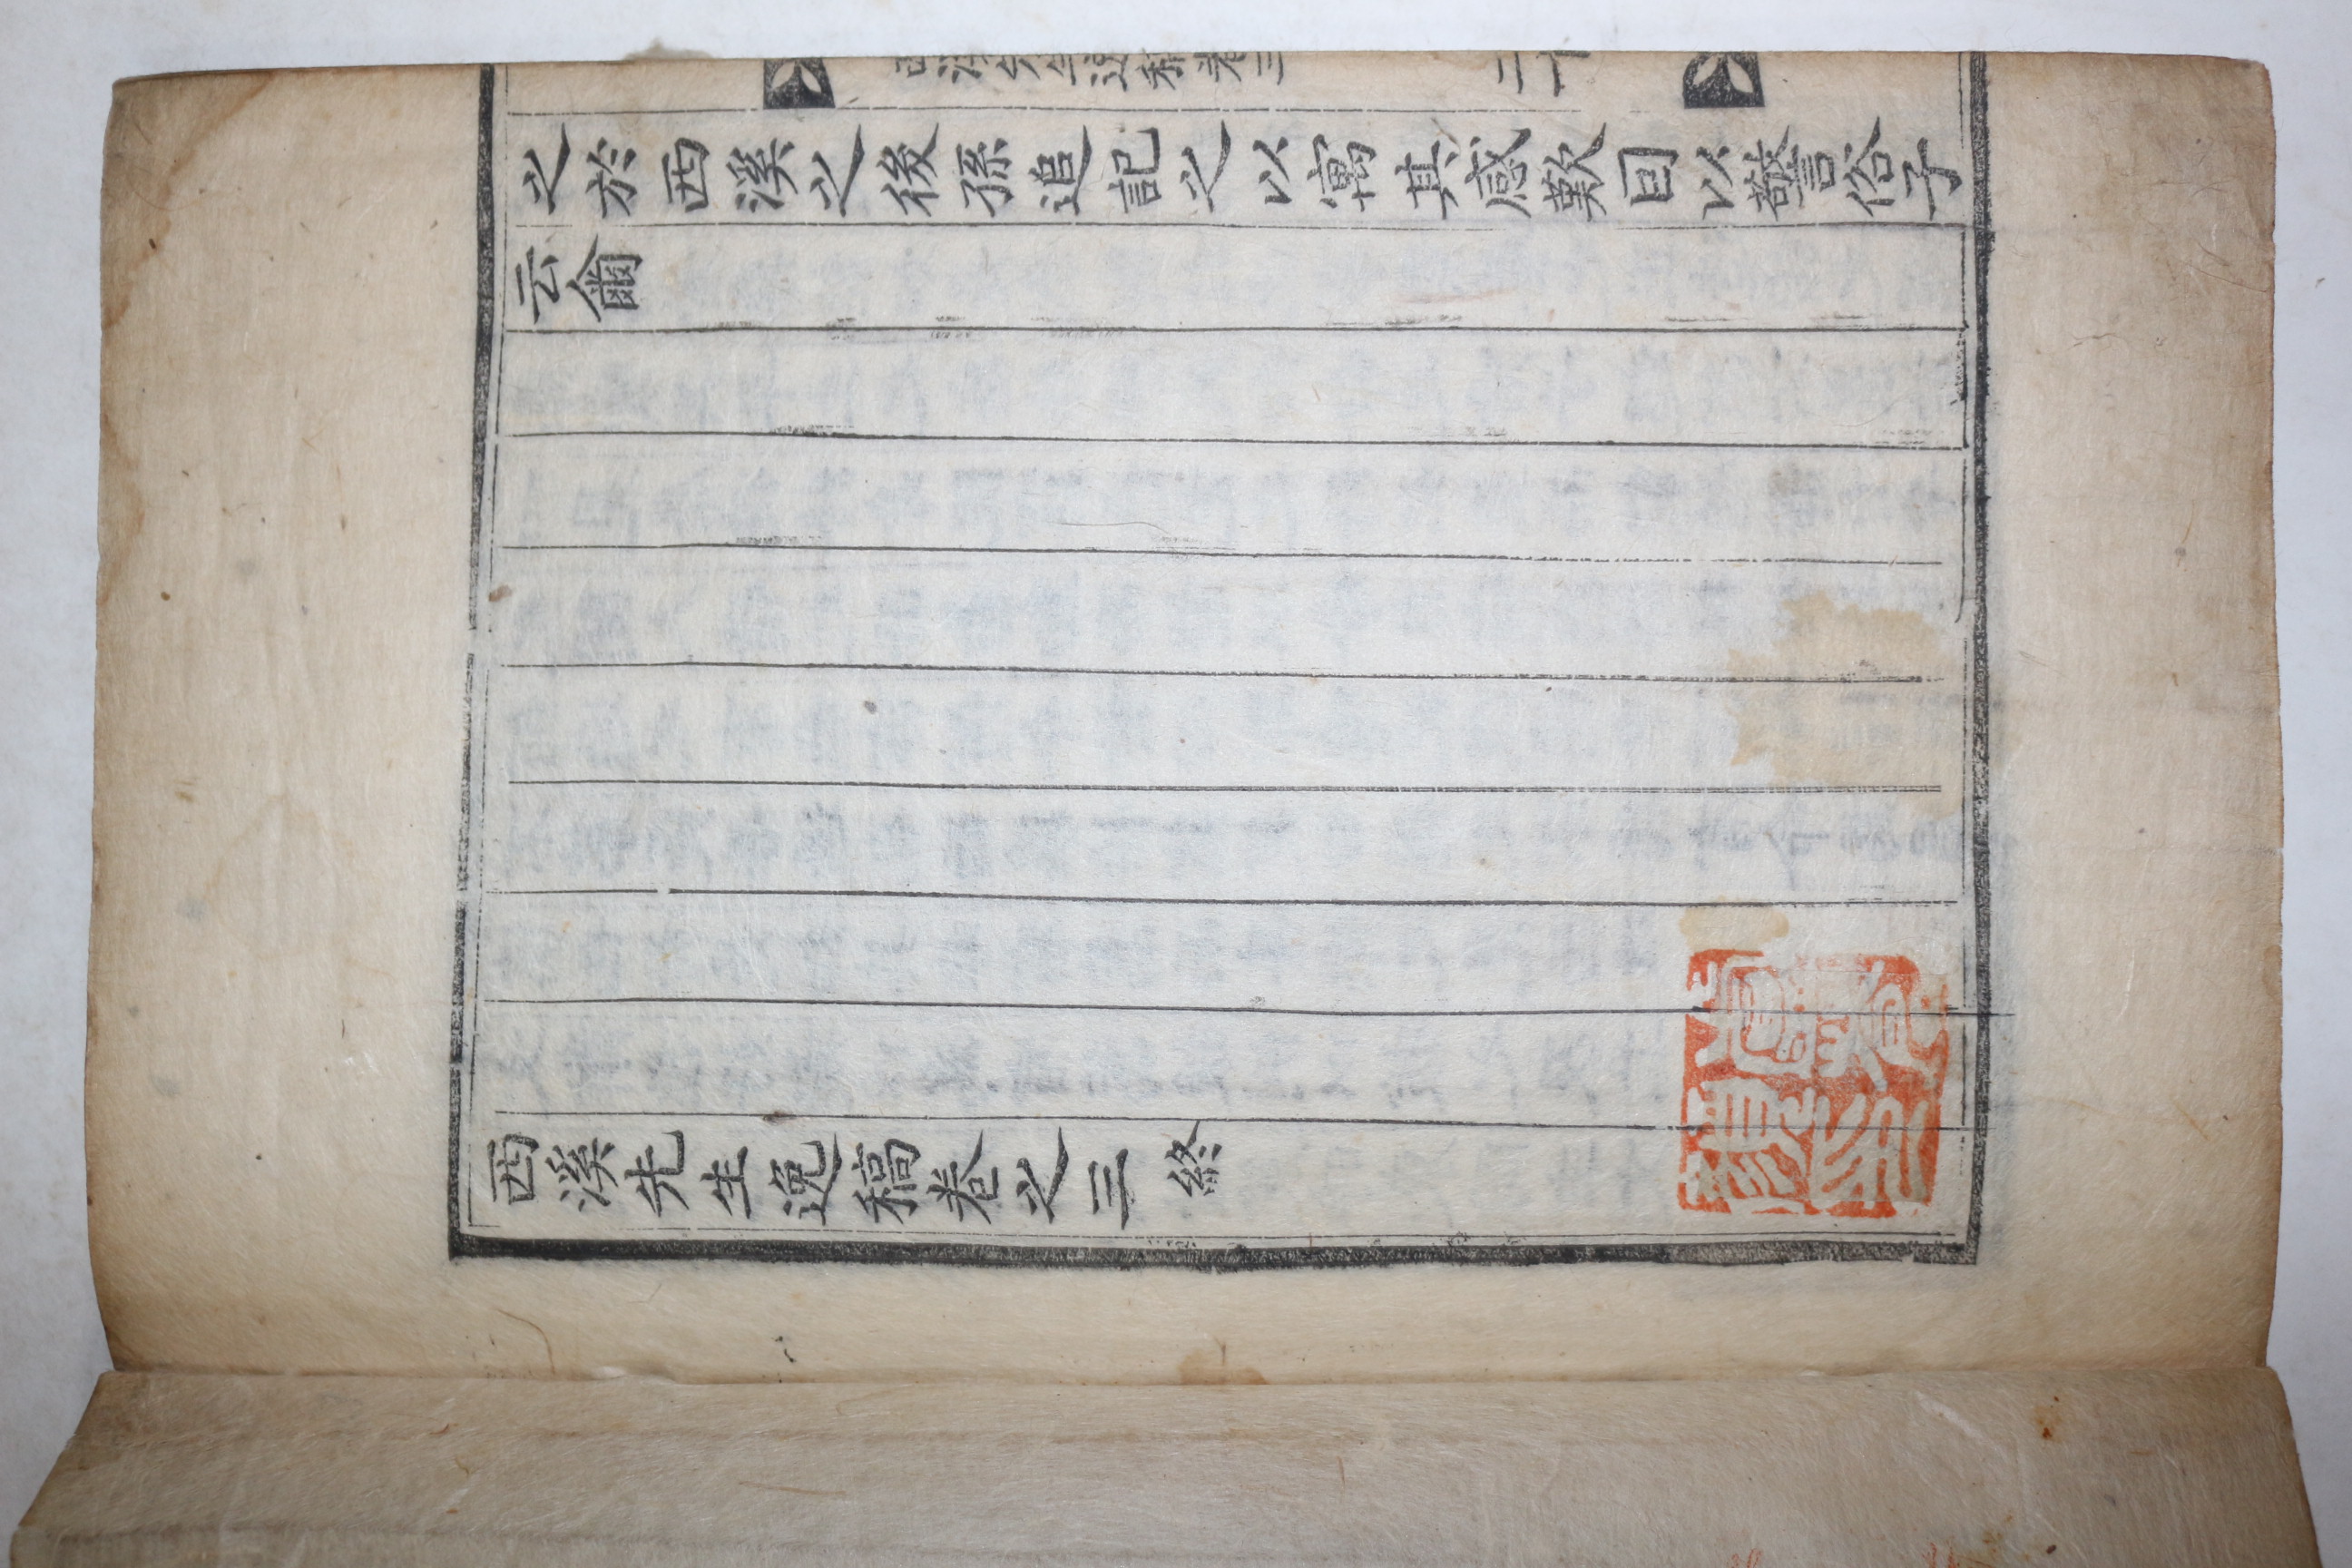 西溪先生逸稿卷三
二十
之於西溪之後孫追記之以寓其感歎因以警俗子
云爾
西溪先生逸稿卷之三 終